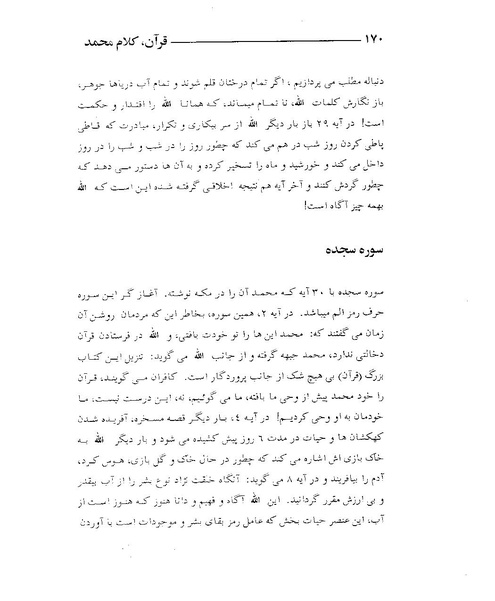 ۱۷۰ قرآن، کلام محمد
دنباله مطلب می پردازیم ، اگر تمام درختان قلم شوند و تمام آب دریاها جوهر،
باز نگارش کلمات الله، نا تمام میماند، که همانا الله را اقتدار و حکمت
است! در آیه ۲۹ باز بار دیگر الله از سر بیکاری و تکرار، مبادرت که قـاطی
پاطی کردن روز شب در هم می کند که چطور روز را در شب و شب را در روز
داخل می کند و خورشید و ماه را تسخیر کرده و به آن ها دستور مـی دهـد کـه
چطور گردش کنند و آخر آیه هم نتیجه اخلاقی گرفته شده این است که الله
بهمه چیز آگاه است!
سوره سجده
سوره سجده با ۳۰ آیه که محمد آن را در مکه نوشته. آغاز گر این سوره
حرف رمز الم میباشد. در آیه ۲، همین سوره، بخاطر این که مردمان روشن آن
زمان می گفتند که: محمد این ها را تو خودت بافتی، و الله در فرستادن قرآن
دخالتی ندارد، محمد جبهه گرفته و از جانب الله می گوید: تنزیل ایـن کتاب
بزرگ (قرآن) بی هیچ شک از جانب پروردگار است. کافران می گویند، قرآن
را خود محمد پیش از وحی ما بافته، ما می گوئیم، نه، این درست نیست، مـا
خودمان به او وحی کردیم! در آیه ٤، بار دیگر قصه مسخره، آفریده شدن
کهکشان ها و حیات در مدت ٦ روز پیش کشیده می شود و بار دیگر الله به
خاک بازی اش اشاره می کند که چطور در حال خاک و گل بازی، هوس کرد،
آدم را بیافریند و در آیه ۸ می گوید: آنگاه خلقت نژاد نوع بشر را از آب بیقدر
و بی ارزش مقرر گردانید. این الله آگاه و فهیم و دانا هنوز که هنوز است از
آب، این عنصر حیات بخش که عامل رمز بقای بشر و موجودات است با آوردن